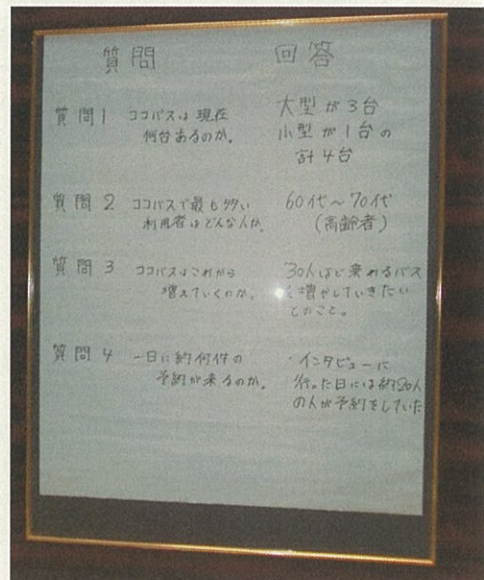 質問 回答
質問1 ココバスは現在
何台あるのか。
大型が3台
小型が1台の
計4台
質問2 ココバスで最も多い
利用者はどんな人か。
60代～70代
(高齢者)
質問3 ココバスはこれから
増えていくのか。
30人ほど乗れるバス
を増やしていきたい
とのこと。
質問4 一日に約何件の
予約が来るのか。
インタビューに
行った日には約80人
の人が予約をしていた